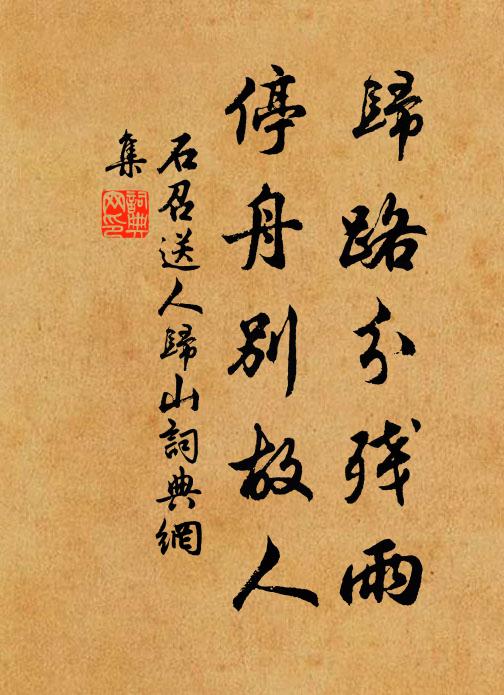 歸路分残雨
停舟别故人
石召送人歸山詞典網
集
詞典
网印